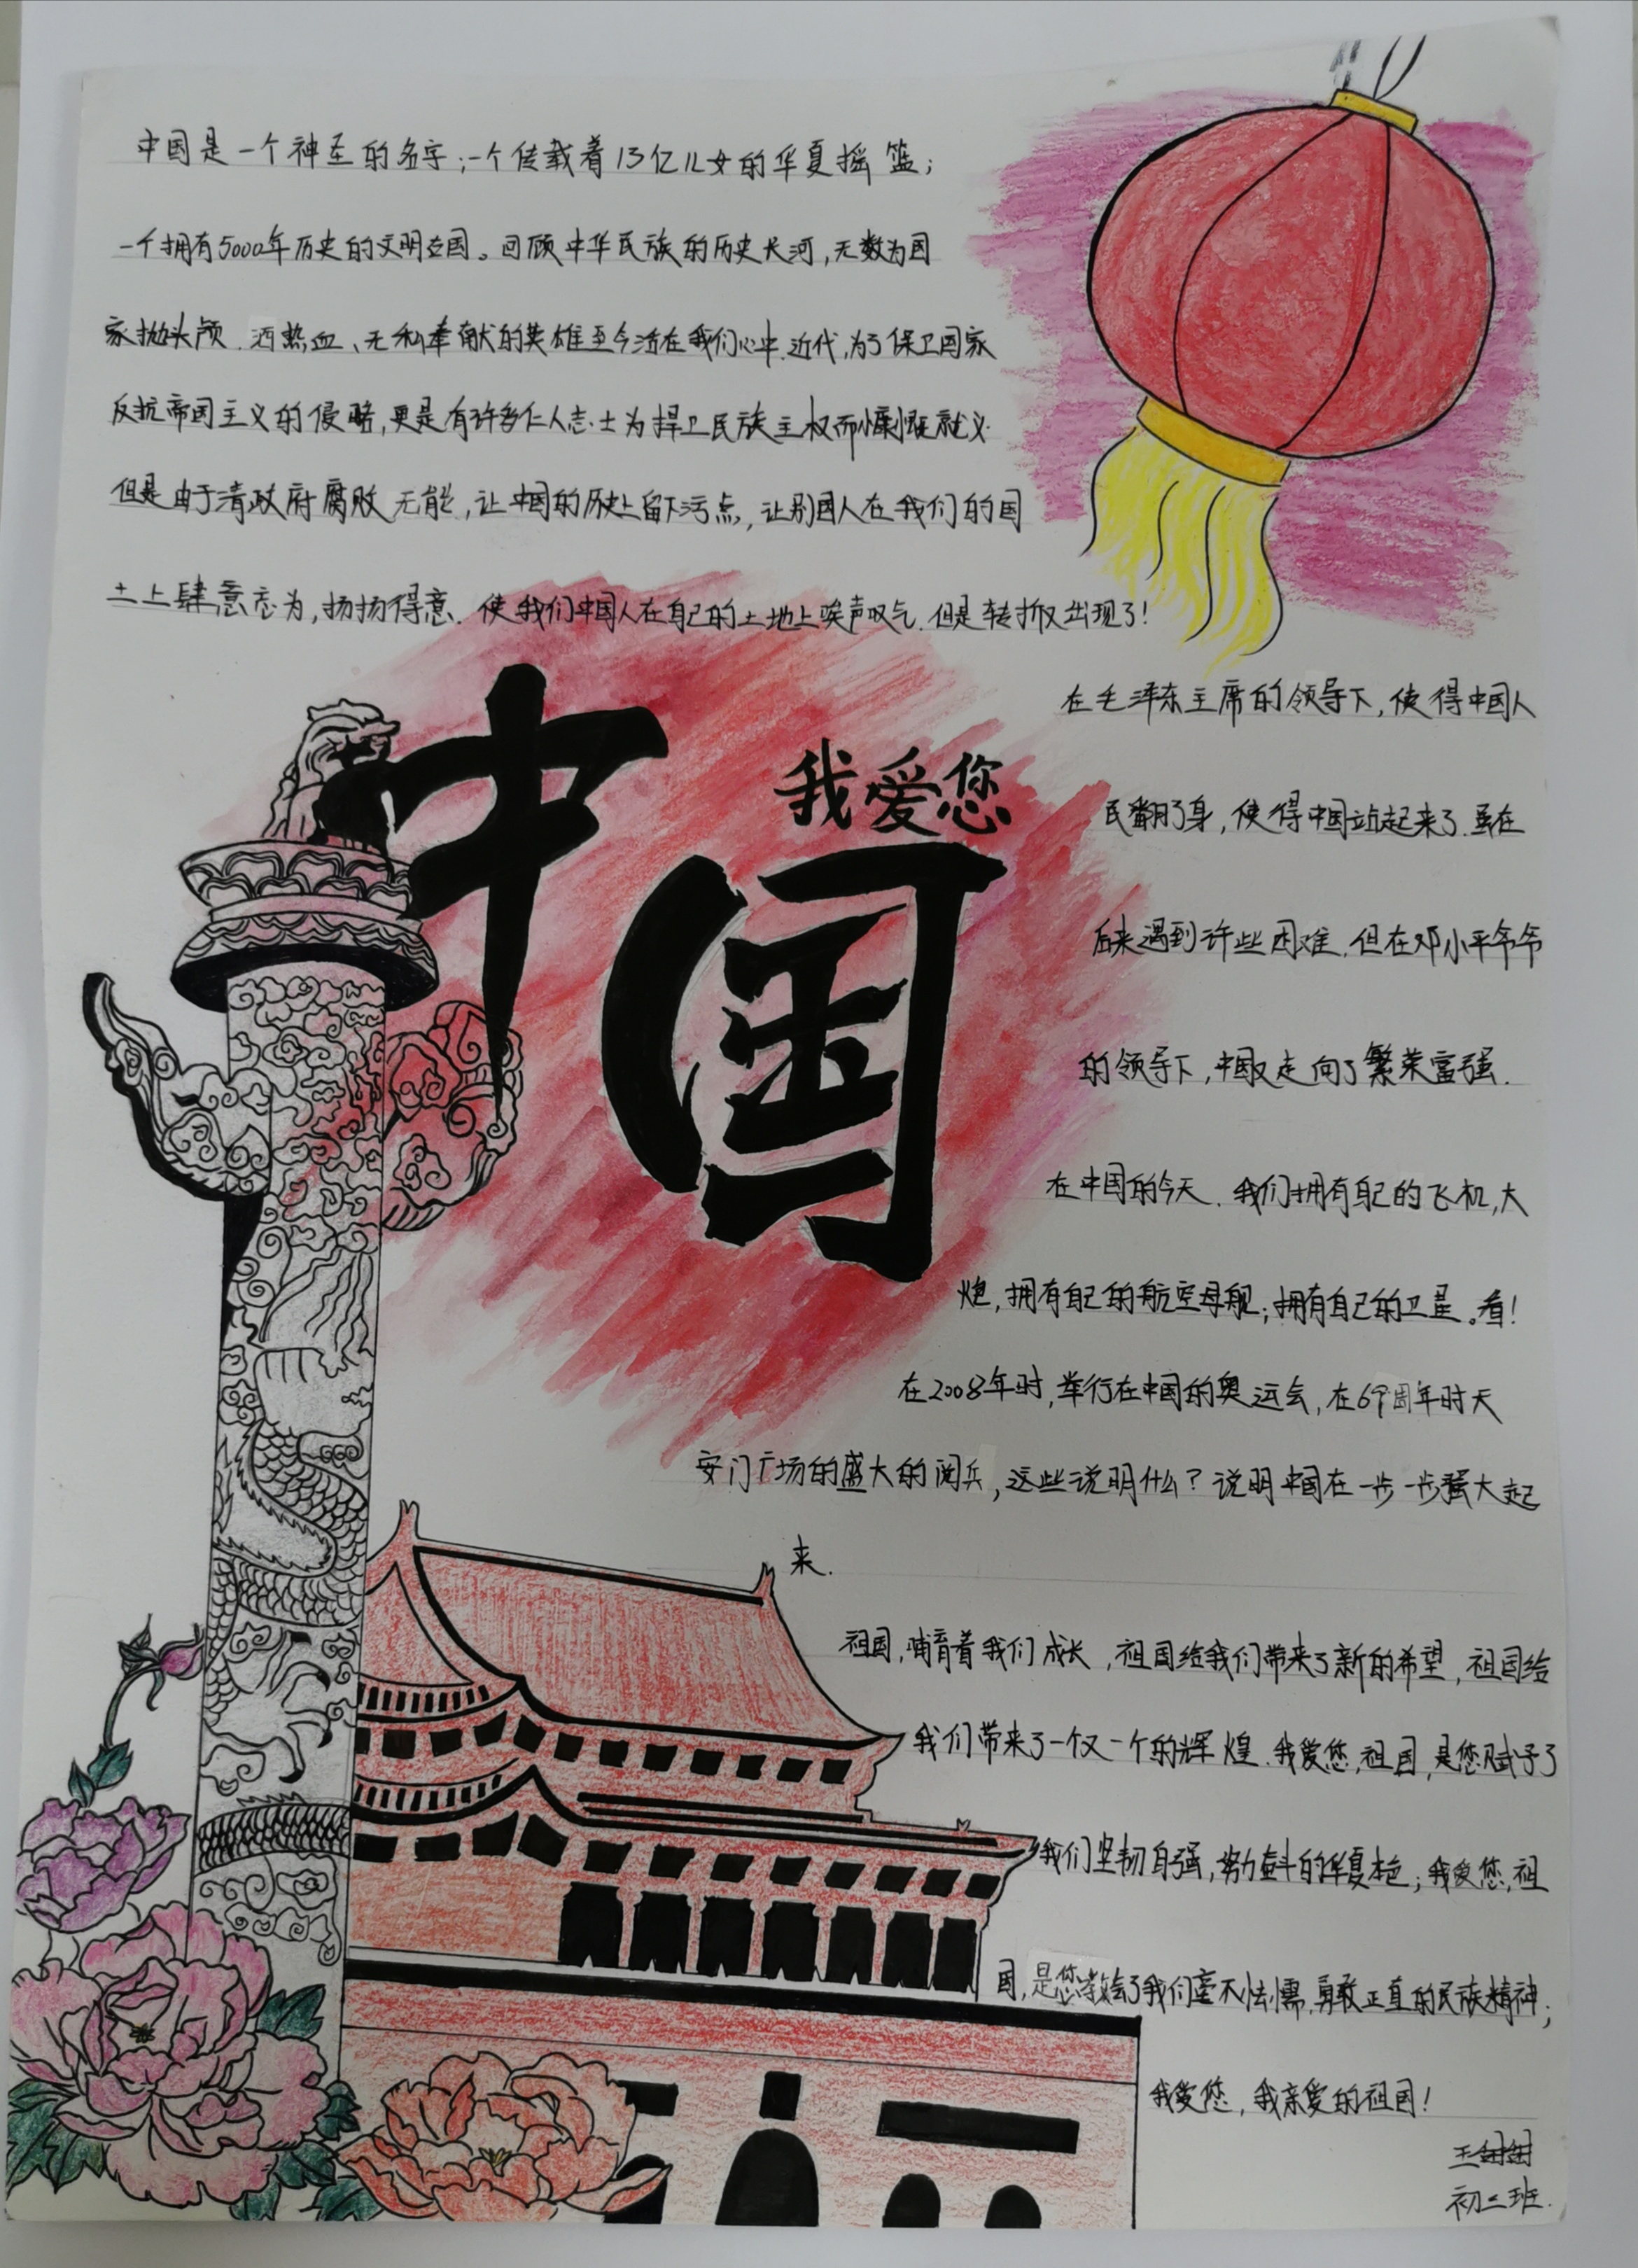 中国是一个神圣的名字;一个传载着13亿儿女的华夏摇篮;
一个拥有5000年历史的文明古国。回顾中华民族的历史长河,无数为国
家抛头颅.洒热血、无私奉献的英雄至今活在我们心中.近代,为了保卫国家
反抗帝国主义的侵略,更是有许多仁人志士为捍卫民族主权而慷慨就义.
但是由于清政府腐败无能,让中国的历史上留下污点,让别国人在我们的国
土上肆意忘为,扬扬得意.使我们中国人在自己的土地上唉声叹气.但是转折又出现了!
中国
我爱您
在毛泽东主席的领导下,使得中国人
民翻了身,使得中国站起来了.虽在
后来遇到许些困难.但在邓小平爷爷
的领导下,中国又走向了繁荣富强.
在中国的今天.我们拥有自己的飞机,大
炮,拥有自己的航空母舰;拥有自己的卫星。看!
在2008年时,举行在中国的奥运会,在69周年时天
安门广场的盛大的阅兵,这些说明什么?说明中国在一步一步强大起
来.
祖国,哺育着我们成长,祖国给我们带来了新的希望,祖国给
我们带来了一个又一个的辉煌.我爱您,祖国,是您赋予了
我们坚韧自强,努力奋斗的华夏本色;我爱您,祖
国,是您教会了我们毫不怯懦,勇敢正直的民族精神;
我爱您,我亲爱的祖国!
初三班.